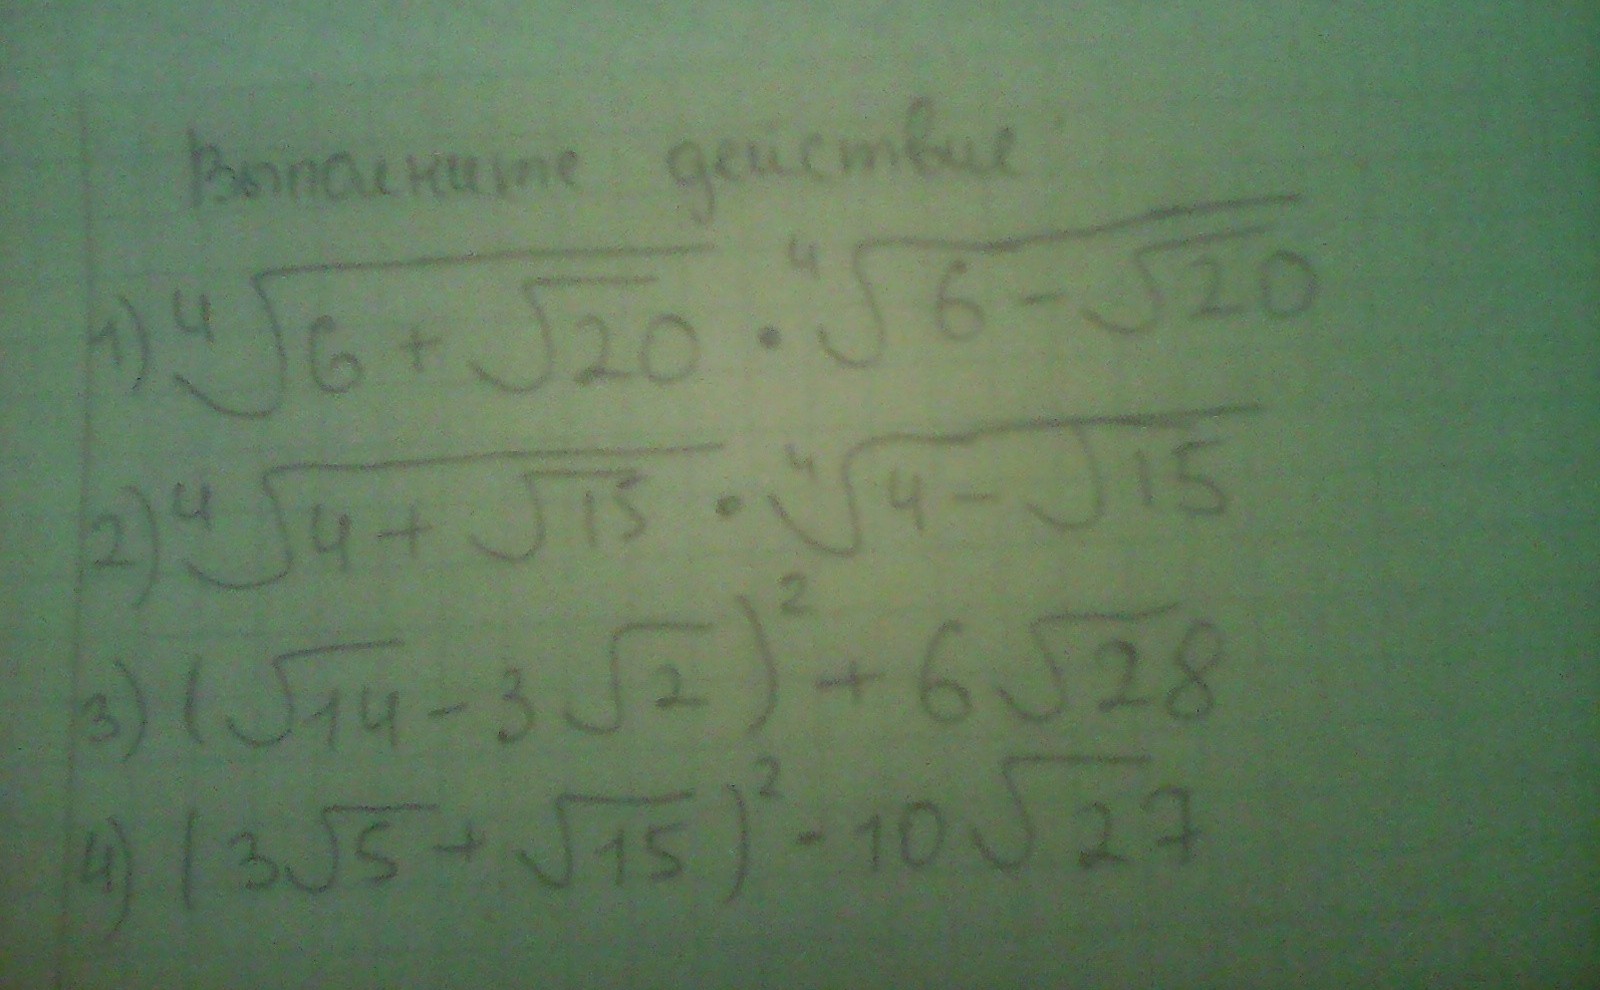 Выполните действие
1) ⁴√(6 + √20) · ⁴√(6 - √20)
2) ⁴√(4 + √15) · ⁴√(4 - √15)
3) (√14 - 3√2)² + 6√28
4) (3√5 + √15)² - 10√27